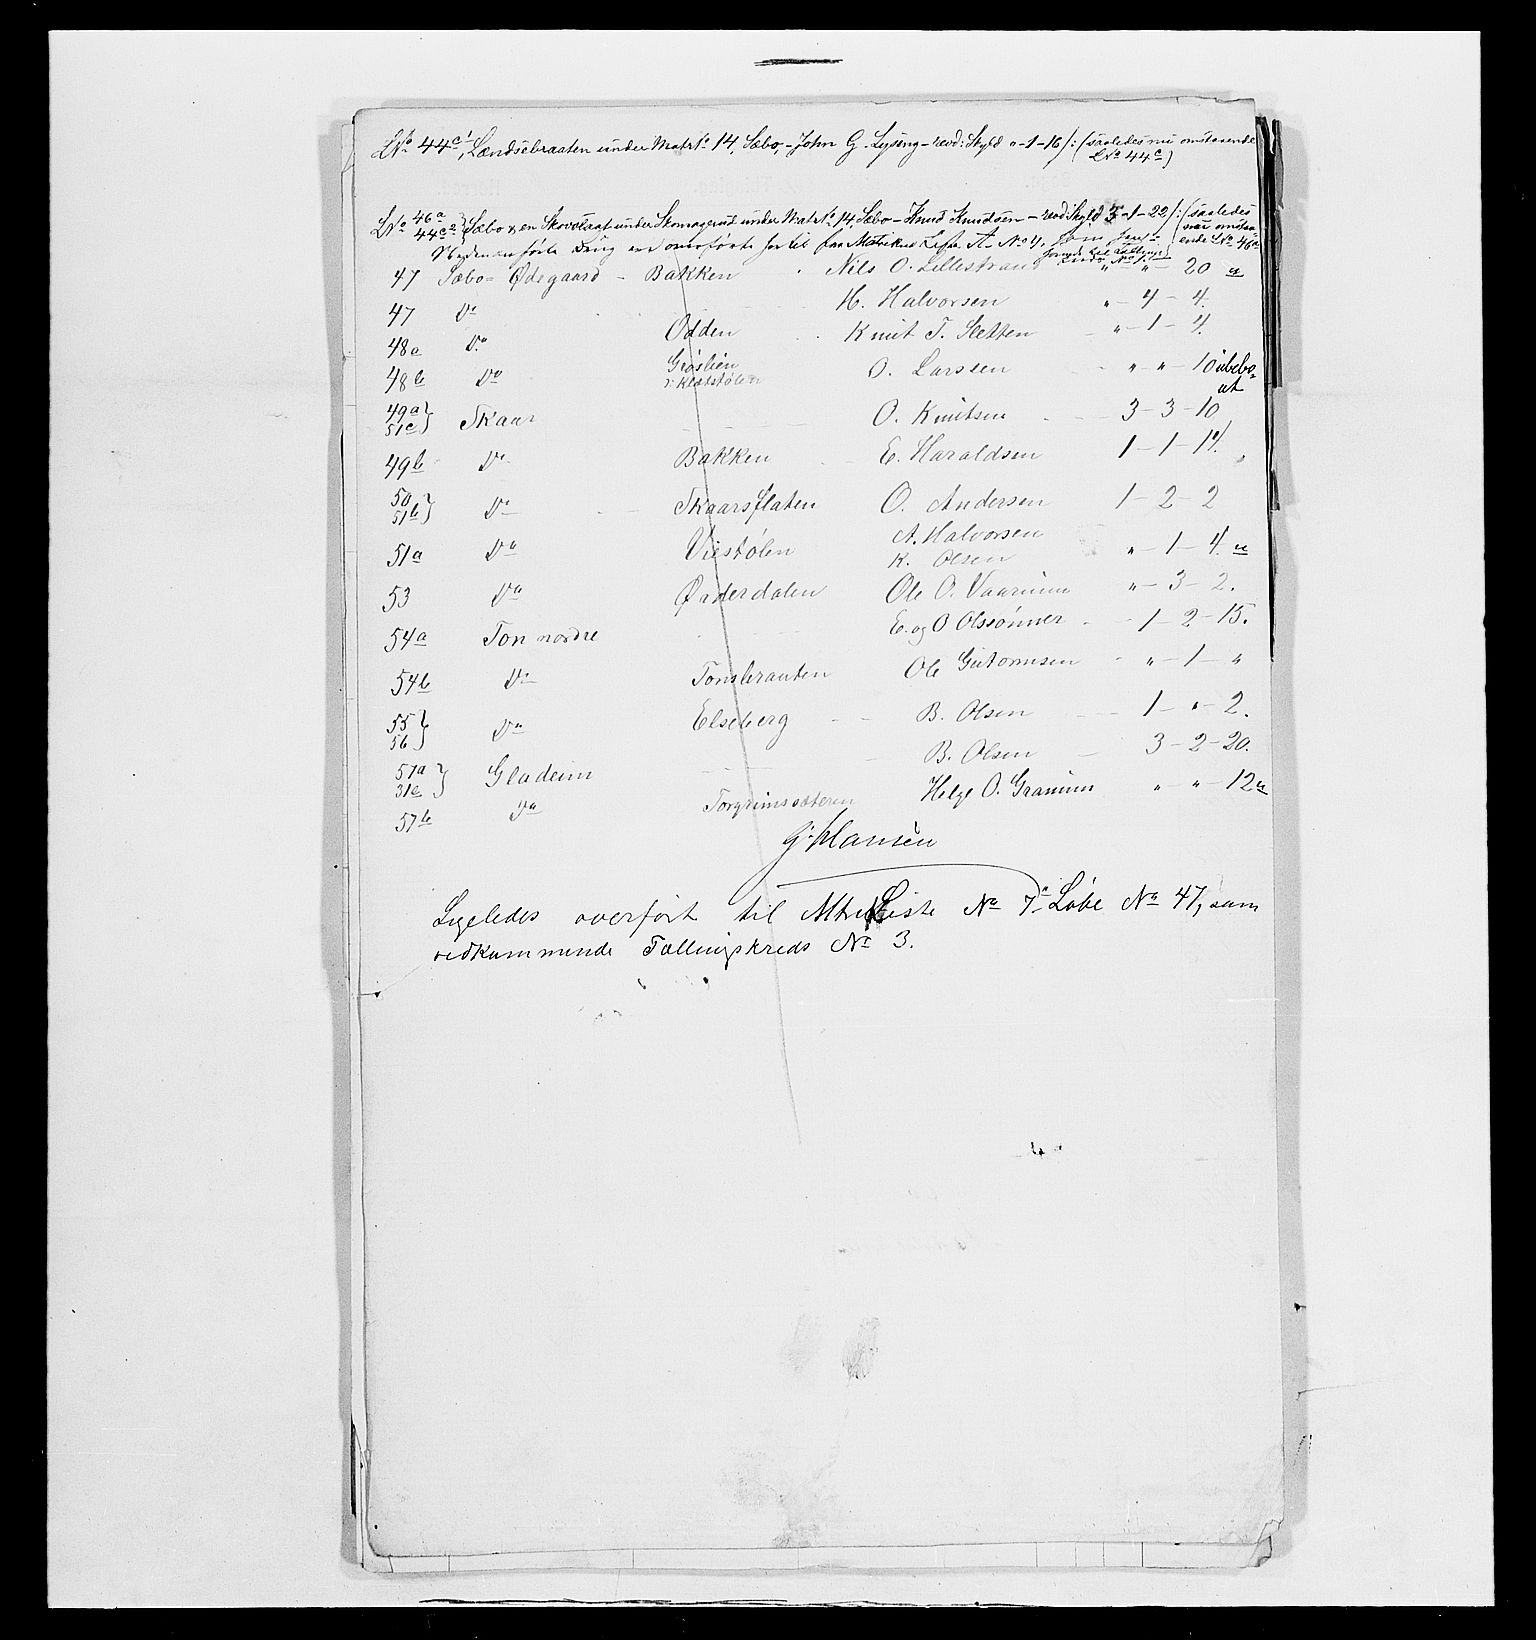 LNo 44c1, Lændsebraaten under Matr No 14, Sæbo, - John G. Lysing - revd: Skyld " - 1 - 16 /: (saaledes nu omstaaende
LNo 44c)
LNo 46a 44c2 } Sæbo & en Skovteaat under Skomagerud under Matr No 14, Sæbo - Knud Knudsen - revd Skyld 3 - 1 - 22 /: (saaledes
nu omstaa-
ende LNo 46a
Nedenanførte Brug er overførte hertil fra Matrikul Liste A - No 4, som
47 Sæbo = Ødegaard - Bakken Nils O. Lillestrand " " - 20 u
47 Do H. Halvorsen " - 4 - 4.
48a Do Odden Knut T. Sletten " - 1 - 4.
48b Do Grøslien O. Larssen " " - 10 ubebo-
et
49a 51c } Skaar O. Knutsen 3 - 3 - 10
49b Do Bakken E. Haraldsen 1 - 1 - 14.
50 51b } Do Skaarsflaten O. Andersen 1 - 2 - 2
51a Do Viestølen A. Halvorsen " - 1 - 4. u
K. Olsen
53 Do Ørderdalen Ole O. Vaarnum " - 3 - 2.
54a Ton nordre E. og O Olssønner - 1 - 2 - 15.
54b Do Tonsbraaten Ole Guttormsen - " - 1 - "
55 56 } Do Elseberg B. Olsen 1 - " - 2.
57a 31e } Gladeim B. Olsen 3 - 2 - 20.
57b Do Torgrimsæteren Helge O. Granum " - " - 12 u
G. Hansen
Ligeledes overført til Mtr Liste No 7a Løbe No 47, som
vedkommende Tællingskreds No 3.